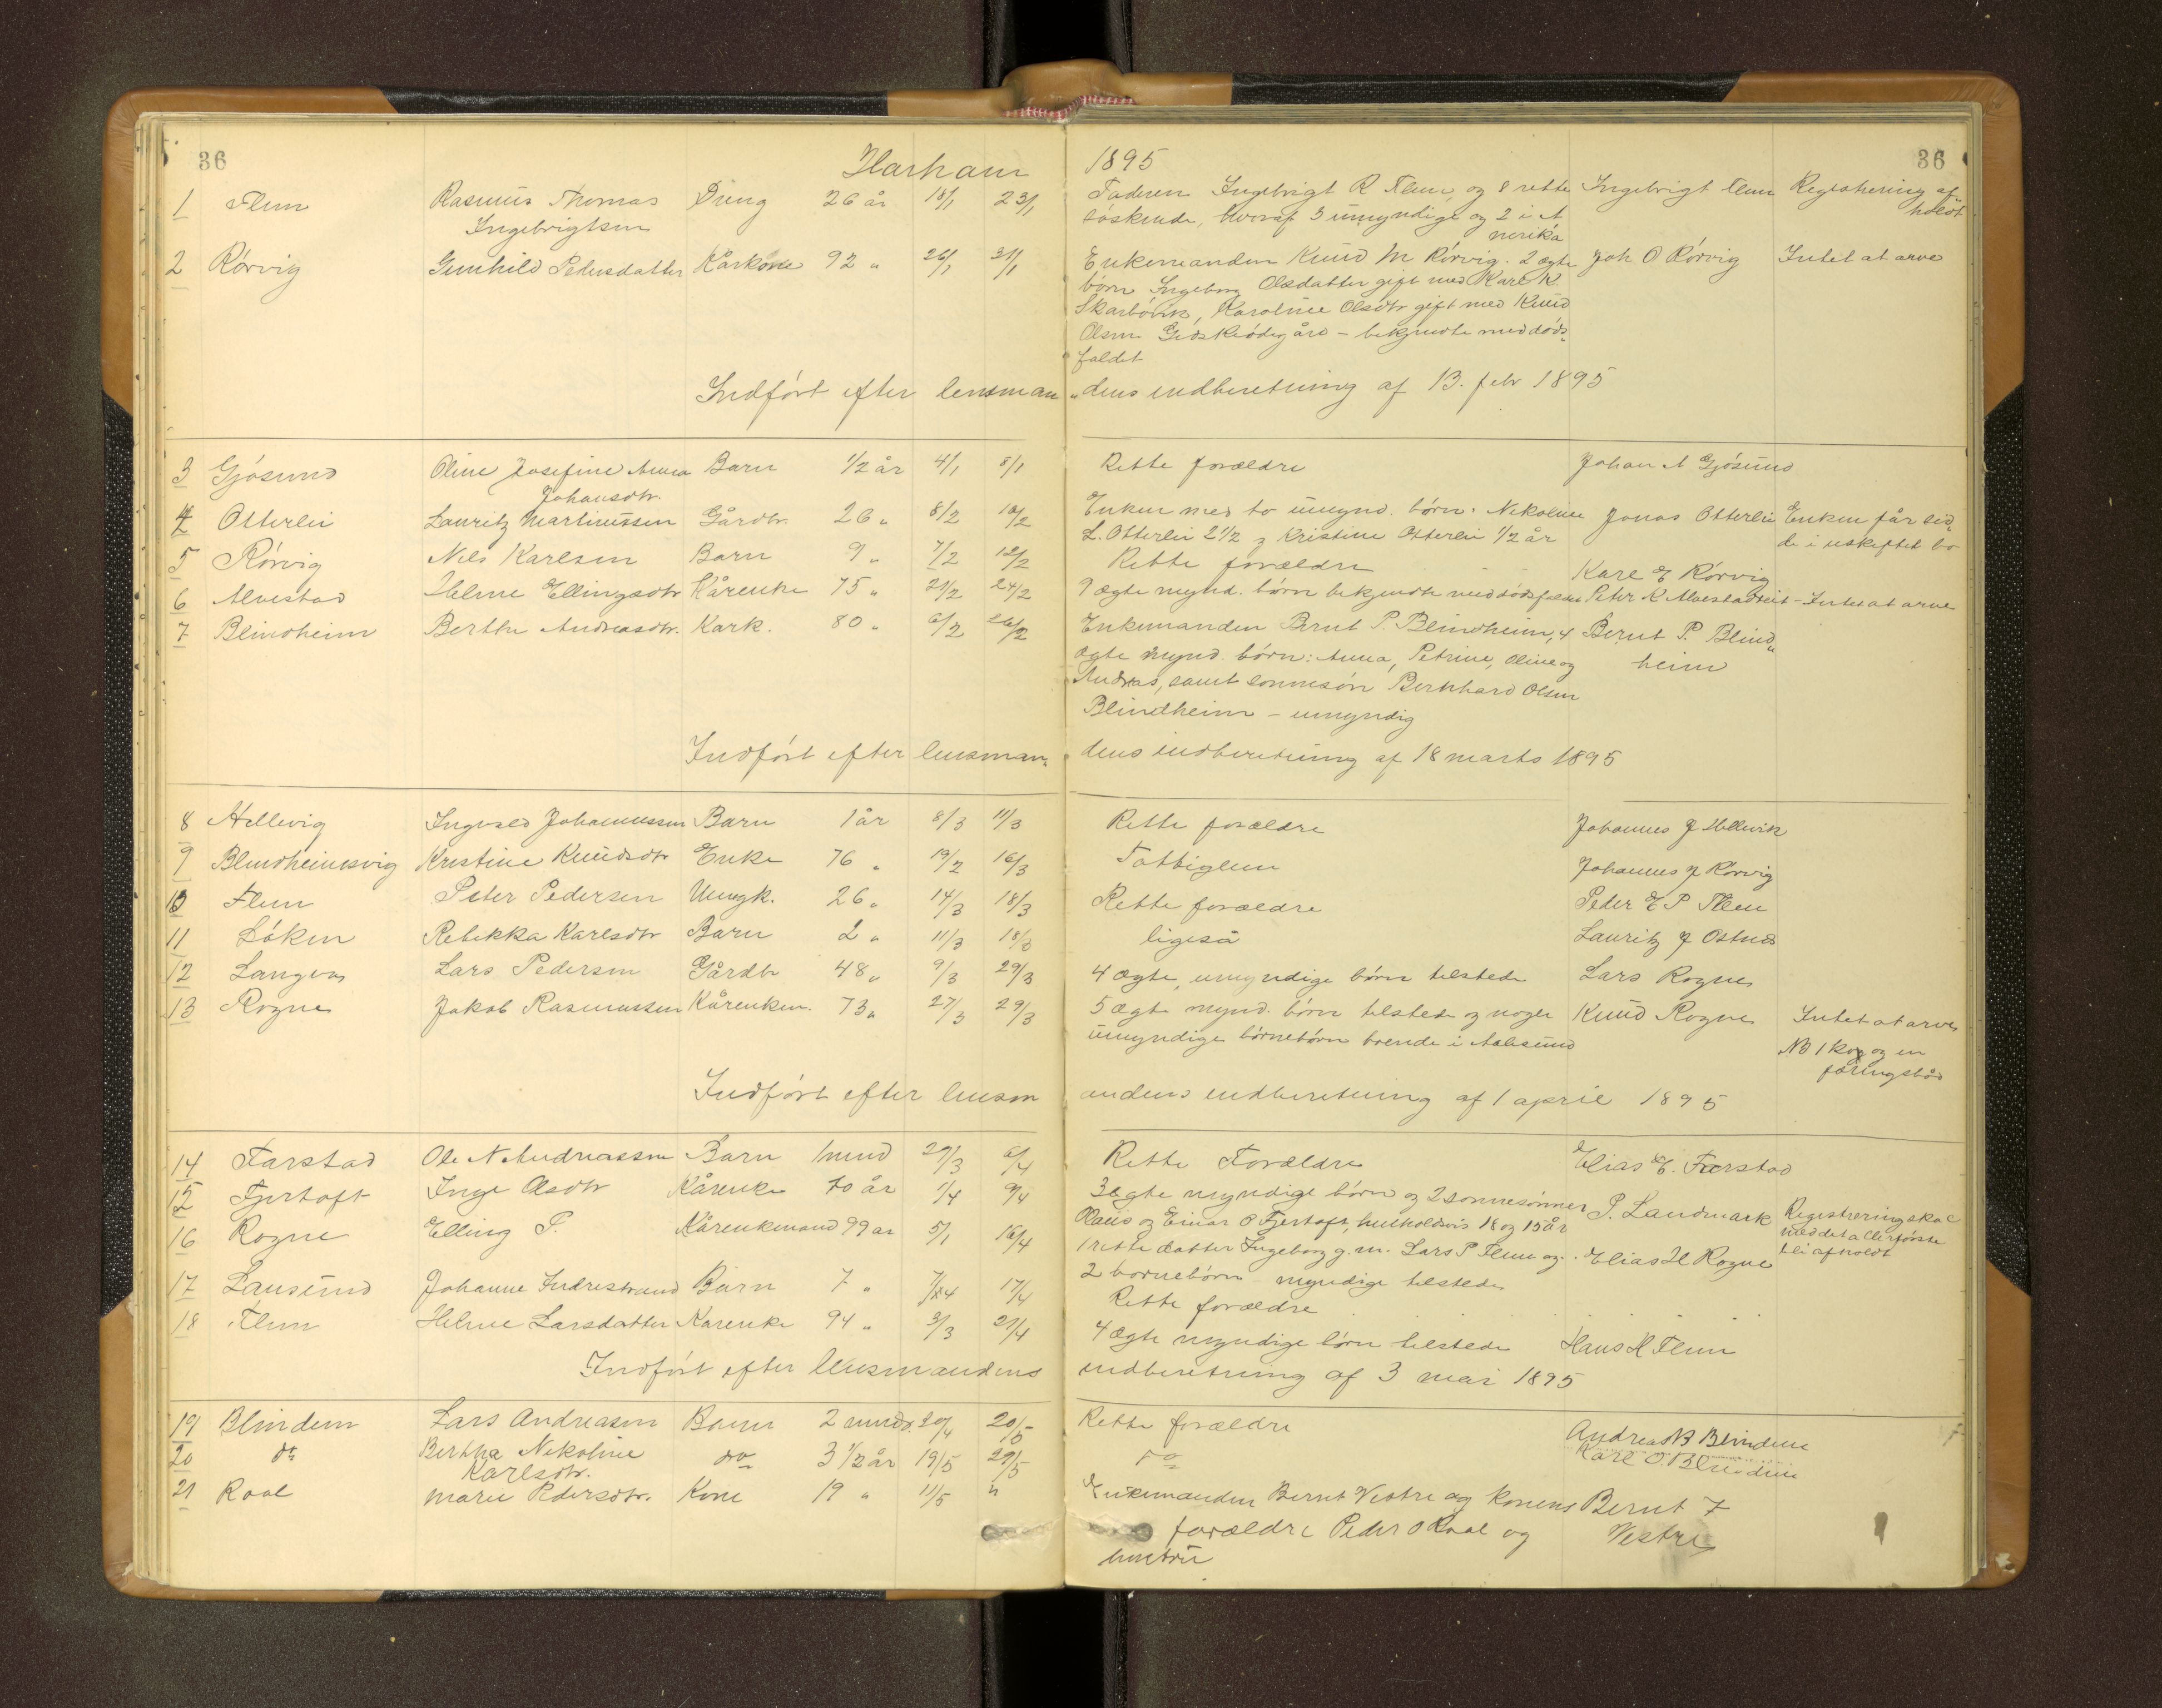 36
Harham
1895
36
1 Flem Rasmus Thomas Dreng 26 år 18/1 23/1 Faderen Ingebrigt R Flem, og 8 rette Ingebrigt Flem Registrering af
Ingebrigtsen søskende, hvoraf 3 umyndige og 2 i A holdt
merika
2 Rørvig Gunhild Pedersdatter Kårkone 92 " 26/1 31/1 Enkemanden Knud M Rørvig. 2 ægte Joh O Rørvig Intet at arve
børn Ingeborg Olsdatter gift med Karl K.
Skarbøvik, Karoline Olsdtr gift med Knud
Olsen Gidskeødegård - bekjendte med døds-
faldet
Indført efter lensman-dens indberetning af 13. febr 1895
3 Gjøsund Oline Josefine Anna Barn 1/2 år 4/1 8/1 Rette forældre Johan A Gjøsund
Johansdtr.
4 Otterlei Lauritz Martinussen Gårdbr. 26 " 8/2 16/2 Enken med to umynd. børn: Nikoline Jonas Otterlei Enken får sid-
L. Otterlei 2 1/2 og Kristine Otterlei 1/2 år de i uskiftet bo
5 Rørvig Nils Karlsen Barn 9 " 7/2 12/2 Rette forældre Karl E Rørvig
6 Alvestad Heline Ellingsdtr Kårenke 75 " 21/2 24/2 9 ægte mynd. børn bekjendte med dødsfaldet Peter K Alvestad - Intet at arve
7 Blindheim Berthe Andreasdtr. Kårk. 80 " 6/2 26/2 Enkemanden Bernt P. Blindheim, 4 Bernt P. Blind-
ægte mynd. børn: Anna, Petrine, Oline og heim
Andreas, samt sønnesøn Bernhard Olsen
Blindheim - umyndig
Indført efter lensman-dens indberetning af 18 marts 1895
8 Hellevig Ingvald Johannessen Barn 1 år 8/3 11/3 Rette forældre Johannes J Hellevik
9 Blindheimsvig Kristine Knudsdtr Enke 76 " 19/2 16/3 Fattiglem Johannes J Rørvig
10 Flem Peter Pedersen Ungk. 26 " 14/3 18/3 Rette forældre Peder E P Flem
11 Løken Rebekka Karlsdtr Barn 2 " 11/3 18/3 ligeså Lauritz J Ostnes
12 Langva Lars Pedersen Gårdbr 48 " 9/3 29/3 4 ægte, umyndige børn tilstede Lars Rogne
13 Rogne Jakob Rasmussen Kårenkem. 73 " 27/3 29/3 5 ægte mynd. børn tilstede og nogle Knud Rogne Intet at arve
umyndige børnebørn boende i Aalesund NB 1 ko og en
færingsbåd
Indført efter lensmandens indberetning af 1 april 1895
14 Farstad Ole N Andreassen Barn 1 mnd 29/3 6/4 Rette Forældre Elias E. Farstad
15 Fjertoft Inge Olsdtr Kårenke 70 år 1/4 9/4 3 ægte myndige børn og 2 sønnesønner P. Landmark Registrering skal
Olaus og Einar O Fjertoft, henholdsvis 18 og 15 år med det allerførste
bli afholdt
16 Rogne Elling P. Kårenkemand 99 år 5/1 16/4 1 rette datter Ingeborg g. m. Lars P Flem og Elias H Rogne
2 børnebørn myndige tilstede
17 Lausund Johanne Indrestrand Barn 7 " 7/4 17/4 Rette forældre
18 Flem Heline Larsdatter Kårenke 94 " 3/3 21/4 4 ægte myndige børn tilstede Hans H Flem
Indført efter lensmandens indberetning af 3 mai 1895
19 Blindem Lars Andreasen Barn 2 mndr. 20/4 20/5 Rette forældre Andreas B Blindem
20 do Bertha Nikoline do 3 1/2 år 19/5 29/5 do Karl O. Blindem
Karlsdtr.
21 Roal Marie Pedersdtr. Kone 19 " 11/5 " Enkemanden Bernt Vestre og konens Bernt F
forældre Peder O Roal og Vestre
hustru